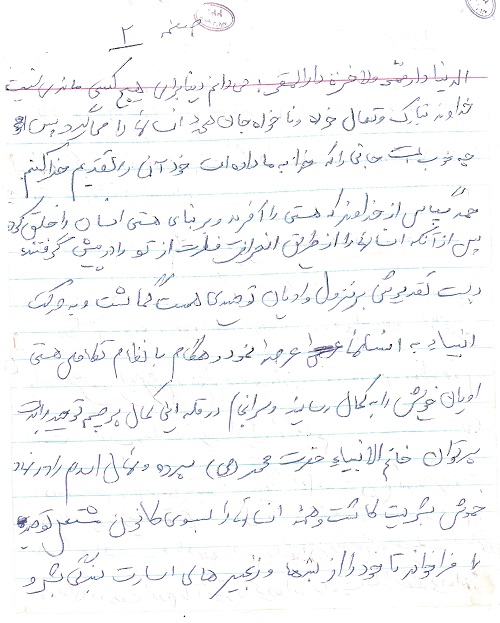 صفحه ۲
الدنیا دار ممر والاخرة دار المقر، می دانم دنیا برای هیچ کسی ماندنی نیست
خداوند تبارک و تعالی خواه و ناخواه جان همه انسانها را می گیرد پس
چه خوب است جانی را که خدا به ما داده است خود آن را تقدیم خدا کنیم
حمد و سپاس از خداوند که هستی را آفرید و بر بنای هستی انسان را خلق کرد
پس از آنکه انسانها از طریق انحراف فطرت از تو را در پیش گرفتند
دست تقدیرش بر نزول ادیان توحیدی همت گماشت و به حرکت
انبیاء به انسانها عرضه نمود و هنگام با نظام تکاملی هستی
ادیان خویش را به کمال رسانید و سرانجام در قله این کمال پرچم توحید را بدست
پرتوان خاتم الانبیاء حضرت محمد (ص) سپرده و نهال اسلام را در نهاد
خموش بشریت کاشت و همه انسانها را بسوی کانون مشتعل توحید
را فراخواند تا خود را از بندها و زنجیرهای اسارت بندگی بشر و